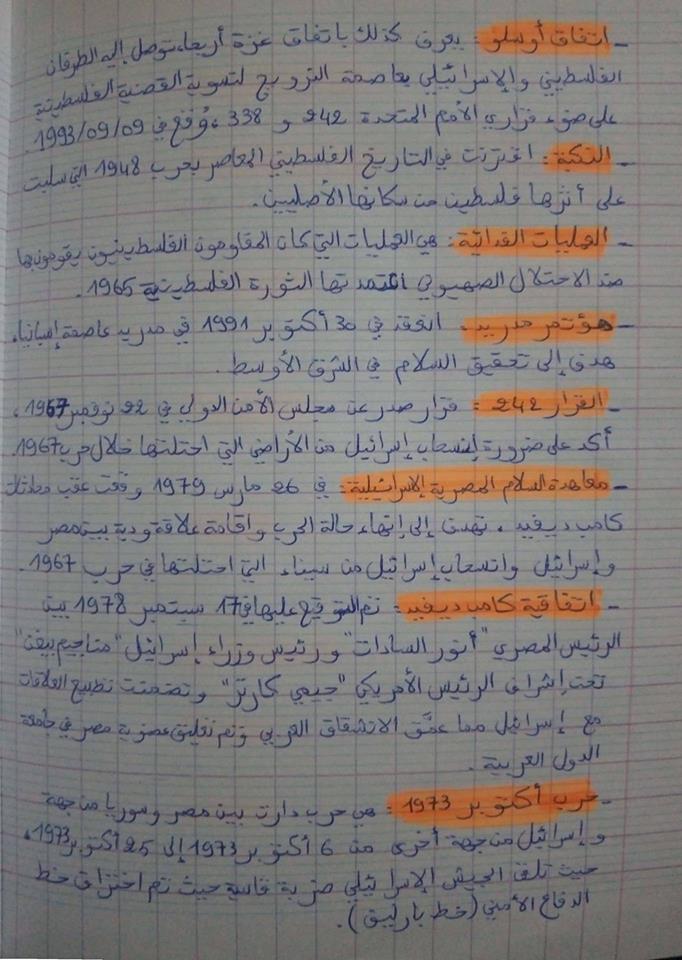 - اتفاق أوسلو: يعرف كذلك باتفاق غزة أريحا، توصل إليه الطرفان
الفلسطيني والإسرائيلي بعاصمة النرويج لتسوية القضية الفلسطينية
على ضوء قراري الأمم المتحدة 242 و 338، وُقع في 1993/09/09.
- النكبة: اقترنت في التاريخ الفلسطيني المعاصر بحرب 1948 التي سلبت
على أثرها فلسطين من سكانها الأصليين.
- العمليات الفدائية: هي العمليات التي كان المقاومون الفلسطينيون يقومون بها
ضد الاحتلال الصهيوني اعتمدتها الثورة الفلسطينية 1965.
- مؤتمر مدريد: انعقد في 30 أكتوبر 1991 في مدريد عاصمة إسبانيا،
هدف إلى تحقيق السلام في الشرق الأوسط.
- القرار 242: قرار صدر عن مجلس الأمن الدولي في 22 نوفمبر 1967،
أكد على ضرورة إنسحاب إسرائيل من الأراضي التي احتلتها خلال حرب 1967.
- معاهدة السلام المصرية الإسرائيلية: في 26 مارس 1979 وقعت عقب محادثات
كامب ديفيد، تهدف إلى إنهاء حالة الحرب وإقامة علاقة ودية بين مصر
وإسرائيل وانسحاب إسرائيل من سيناء التي احتلتها في حرب 1967.
- اتفاقية كامب ديفيد: تم التوقيع عليها في 17 سبتمبر 1978 بين
الرئيس المصري "أنور السادات" ورئيس وزراء إسرائيل "مناجيم بيغن"
تحت إشراف الرئيس الأمريكي "جيمي كارتر" وتضمنت تطبيع العلاقات
مع إسرائيل مما عمّق الانشقاق العربي وتم تعليق عضوية مصر في جامعة
الدول العربية.
- حرب أكتوبر 1973: هي حرب دارت بين مصر وسوريا من جهة
وإسرائيل من جهة أخرى من 6 أكتوبر 1973 إلى 25 أكتوبر 1973،
حيث تلقى الجيش الإسرائيلي ضربة قاسية حيث تم اختراق خط
الدفاع الأمني (خط بارليف).